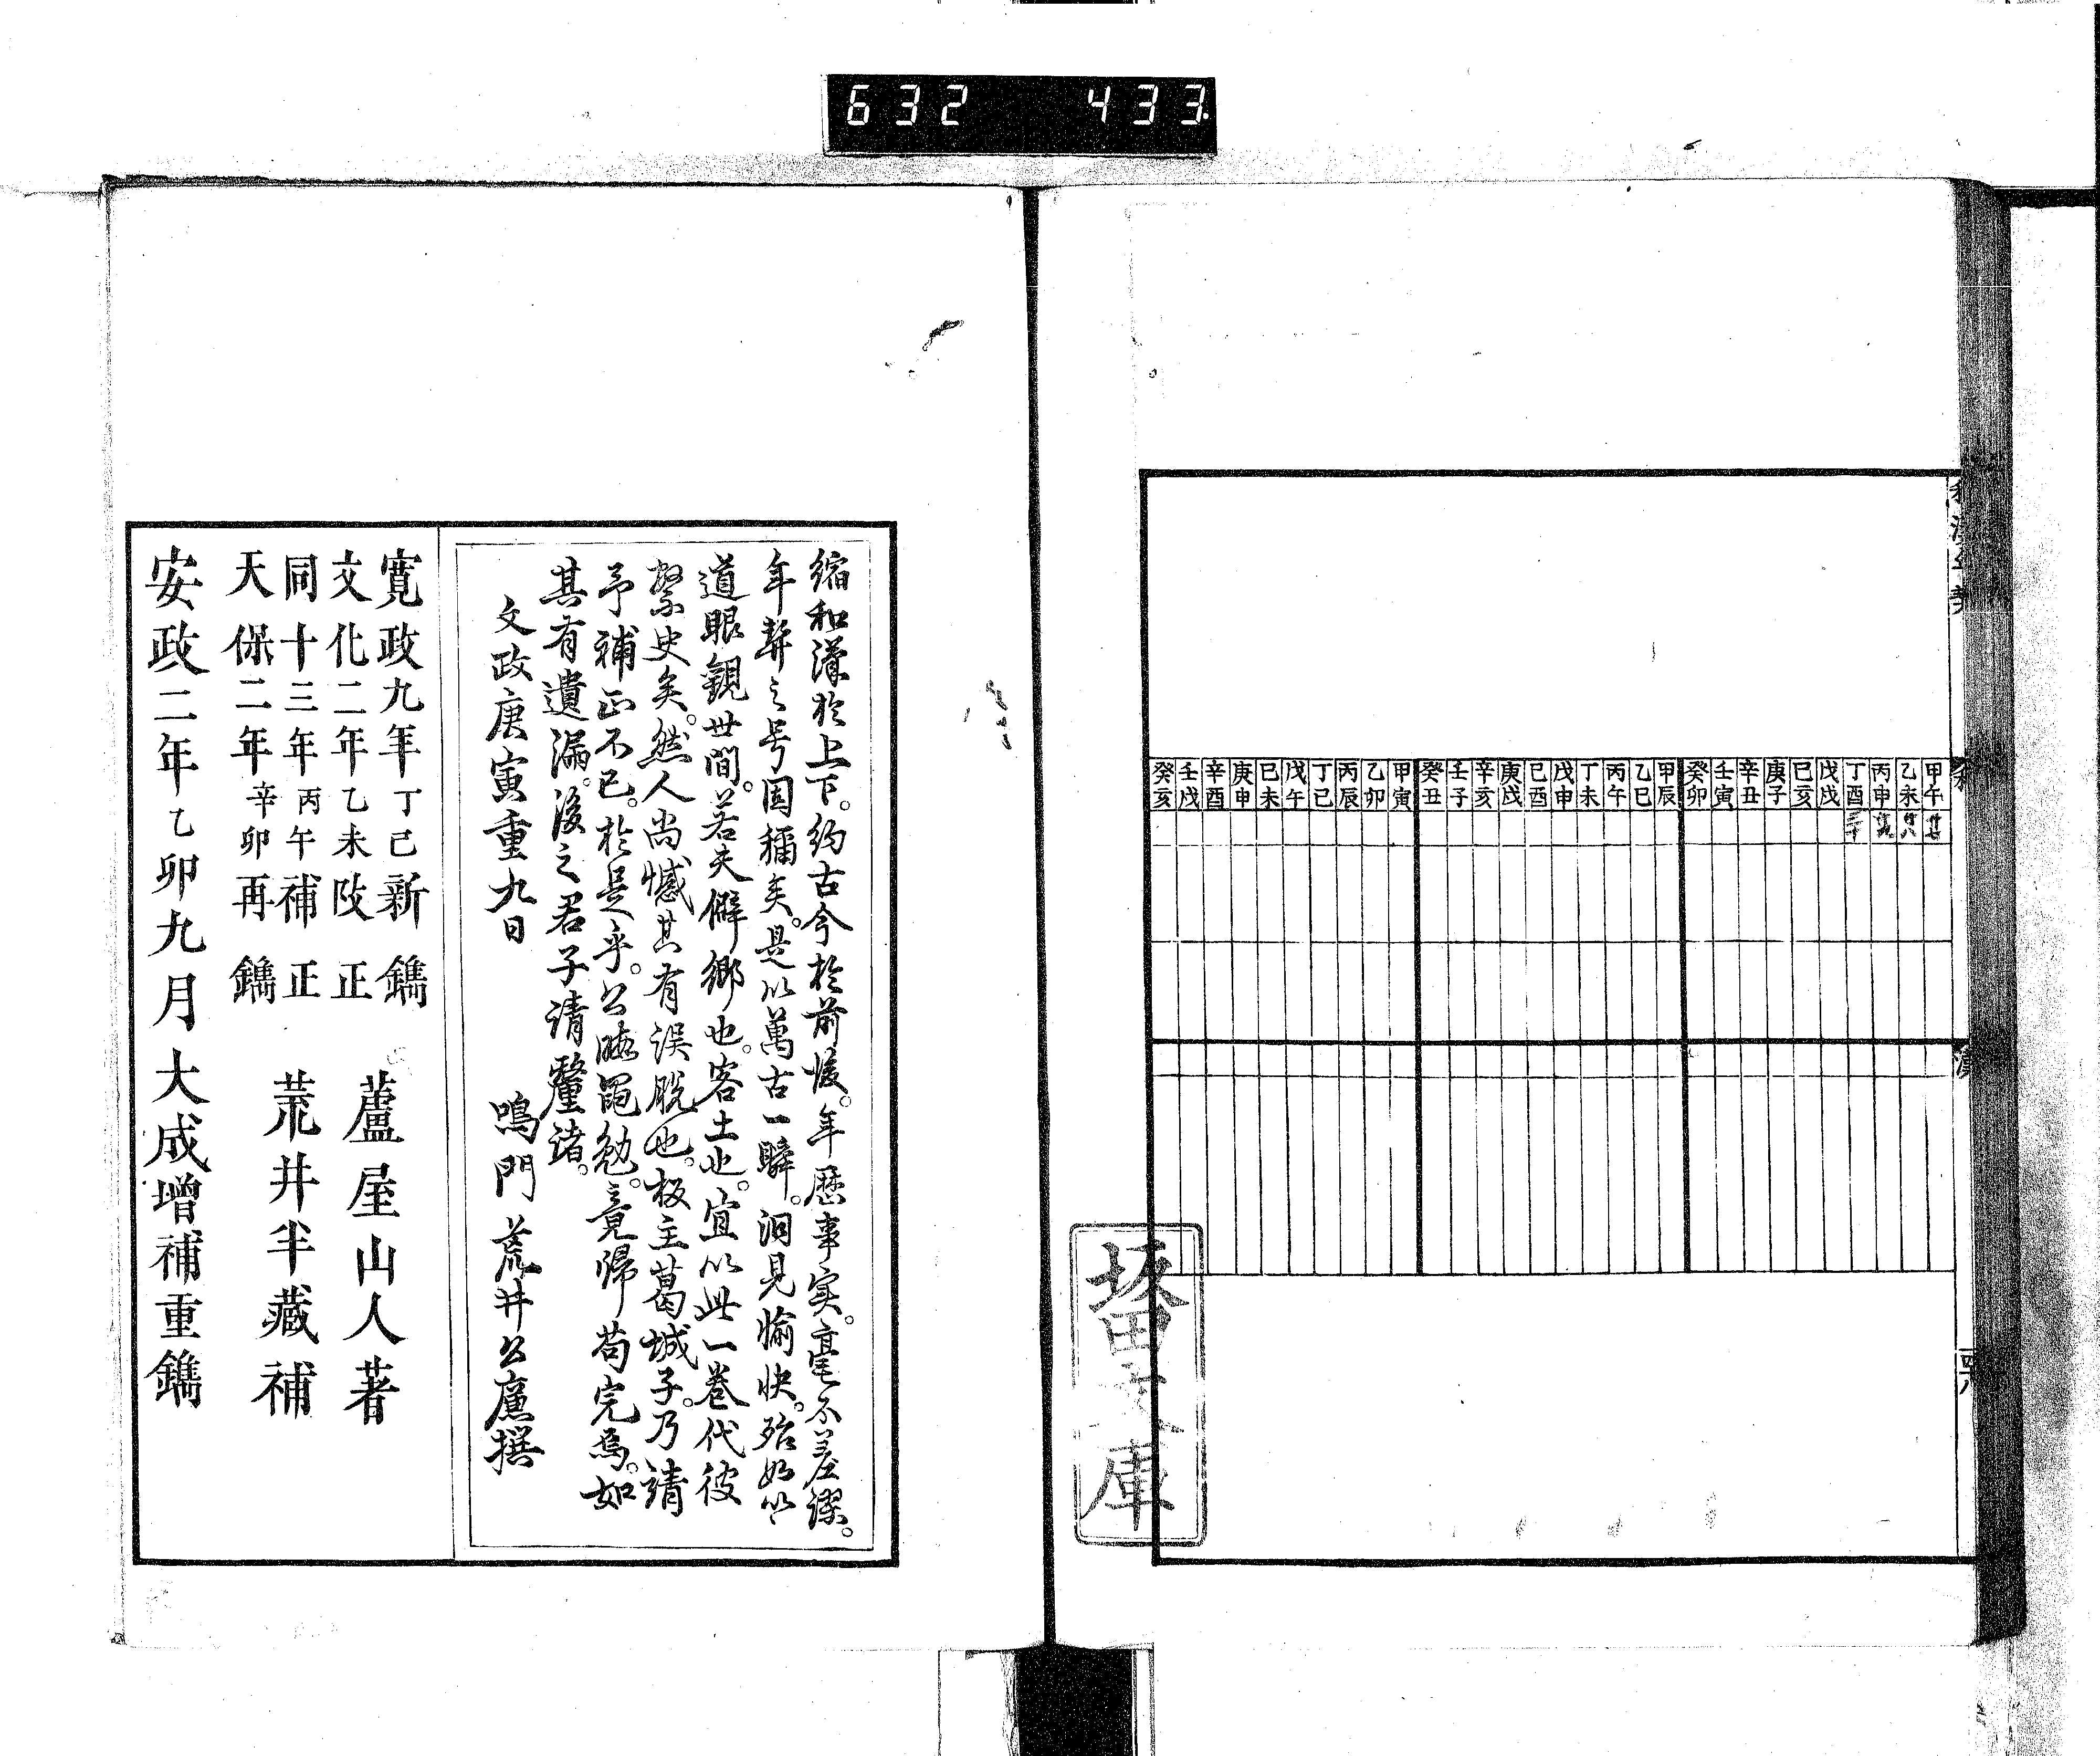 632 433
和漢年契
和
漢
甲午 廿七
乙未 廿八
丙申 廿九
丁酉 三十
戊戌
己亥
庚子
辛丑
壬寅
癸卯
甲辰
乙巳
丙午
丁未
戊申
己酉
庚戌
辛亥
壬子
癸丑
甲寅
乙卯
丙辰
丁巳
戊午
己未
庚申
辛酉
壬戌
癸亥
四十八
縮和漢於上下。約古今於前後。年歴事実。毫不差謬。
年契之号固稱矣。是以萬古一瞬。洞見愉快。殆如以
道眼観世間。若夫僻郷也。客土也。宜以此一巻代彼
繋史矣。然人尚憾其有誤脱也。板主葛城子。乃請
予補正不已。於是乎。公廉黽勉。竟帰苟完焉。如
其有遺漏。後之君子請釐諸。
文政庚寅重九日 鳴門 荒井公廉撰
寛政九年丁巳新鐫
文化二年乙未改正
同十三年丙午補正
天保二年辛卯再鐫
蘆屋山人著
荒井半藏補
安政二年乙卯九月大成増補重鐫